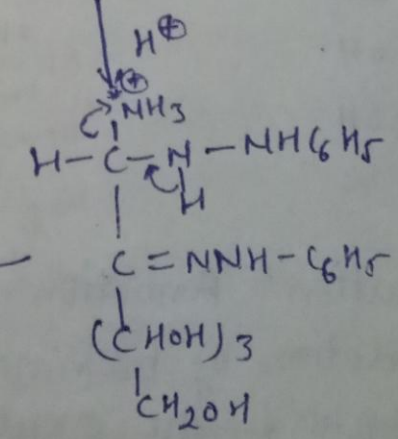 H⊕
⊕
NH3
H-C-N-NHC6H5
H
C=NNH-C6H5
(CHOH)3
CH2OH